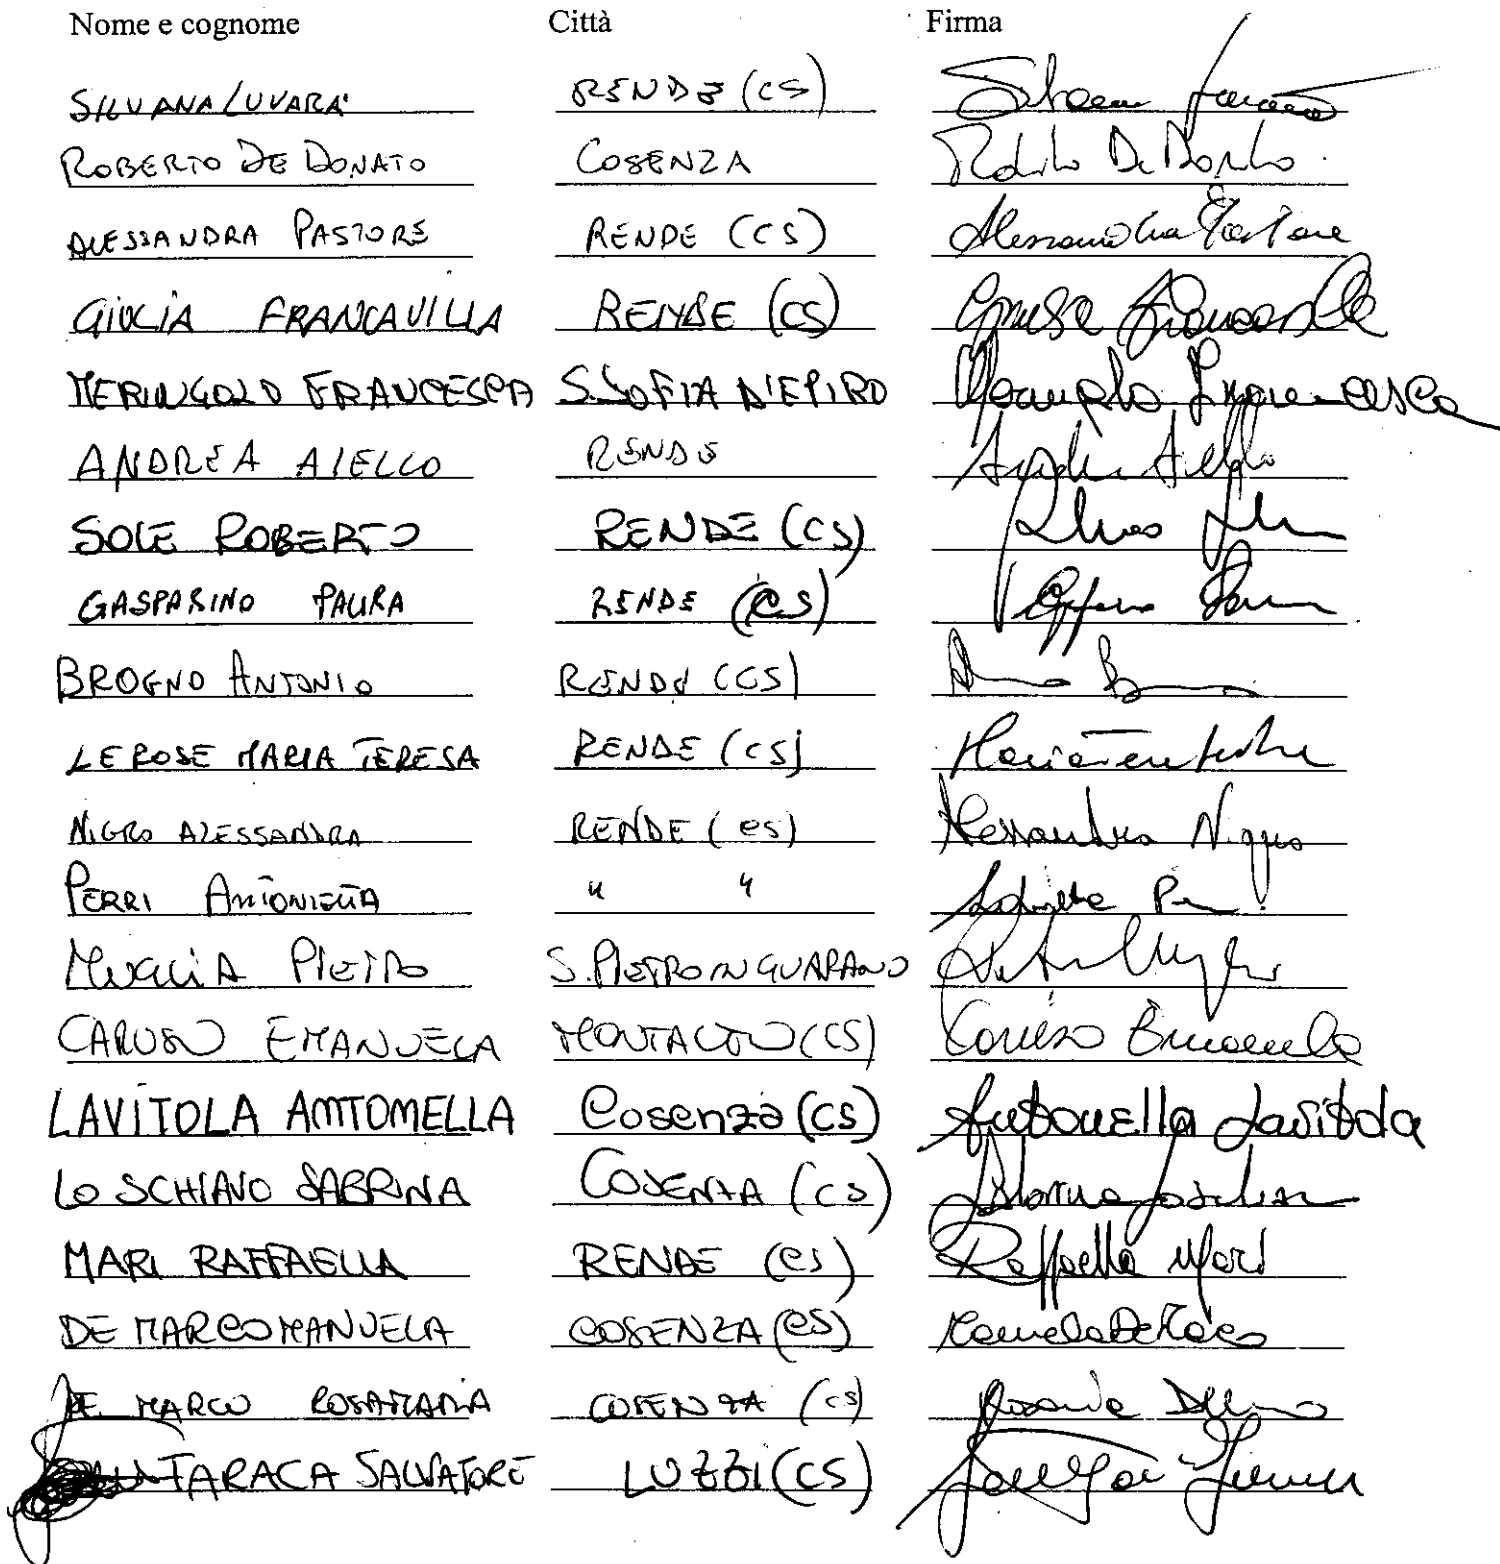 Nome e cognome Città Firma
SILVANA LUVARA' RENDE (CS)
ROBERTO DE DONATO COSENZA Roberto De Donato
ALESSANDRA PASTORE RENDE (CS) Alessandra Pastore
GIULIA FRANCAVILLA RENDE (CS) Francavilla
MERINGOLO FRANCESCA S. SOFIA D'EPIRO Meringolo Francesca
ANDREA AIELLO RENDE Andrea Aiello
SOLE ROBERTO RENDE (CS)
GASPARINO PAURA RENDE (CS)
BROGNO ANTONIO RENDE (CS)
LEROSE MARIA TERESA RENDE (CS)
NIGRO ALESSANDRA RENDE (CS) Alessandra Nigro
PERRI ANTONIETTA " "
PIETRO S. PIETRO IN GUARANO
CARUSO EMANUELA MONTALTO (CS) Caruso Emanuela
LAVITOLA ANTONELLA Cosenza (CS) Antonella Lavitola
LO SCHIAVO SABRINA COSENZA (CS)
MARI RAFFAELLA RENDE (CS) Raffaella Mari
DE MARCO MANUELA COSENZA (CS) Manuela De Marco
DE MARCO ROSAMARIA COSENZA (CS)
TARACA SALVATORE LUZZI (CS)